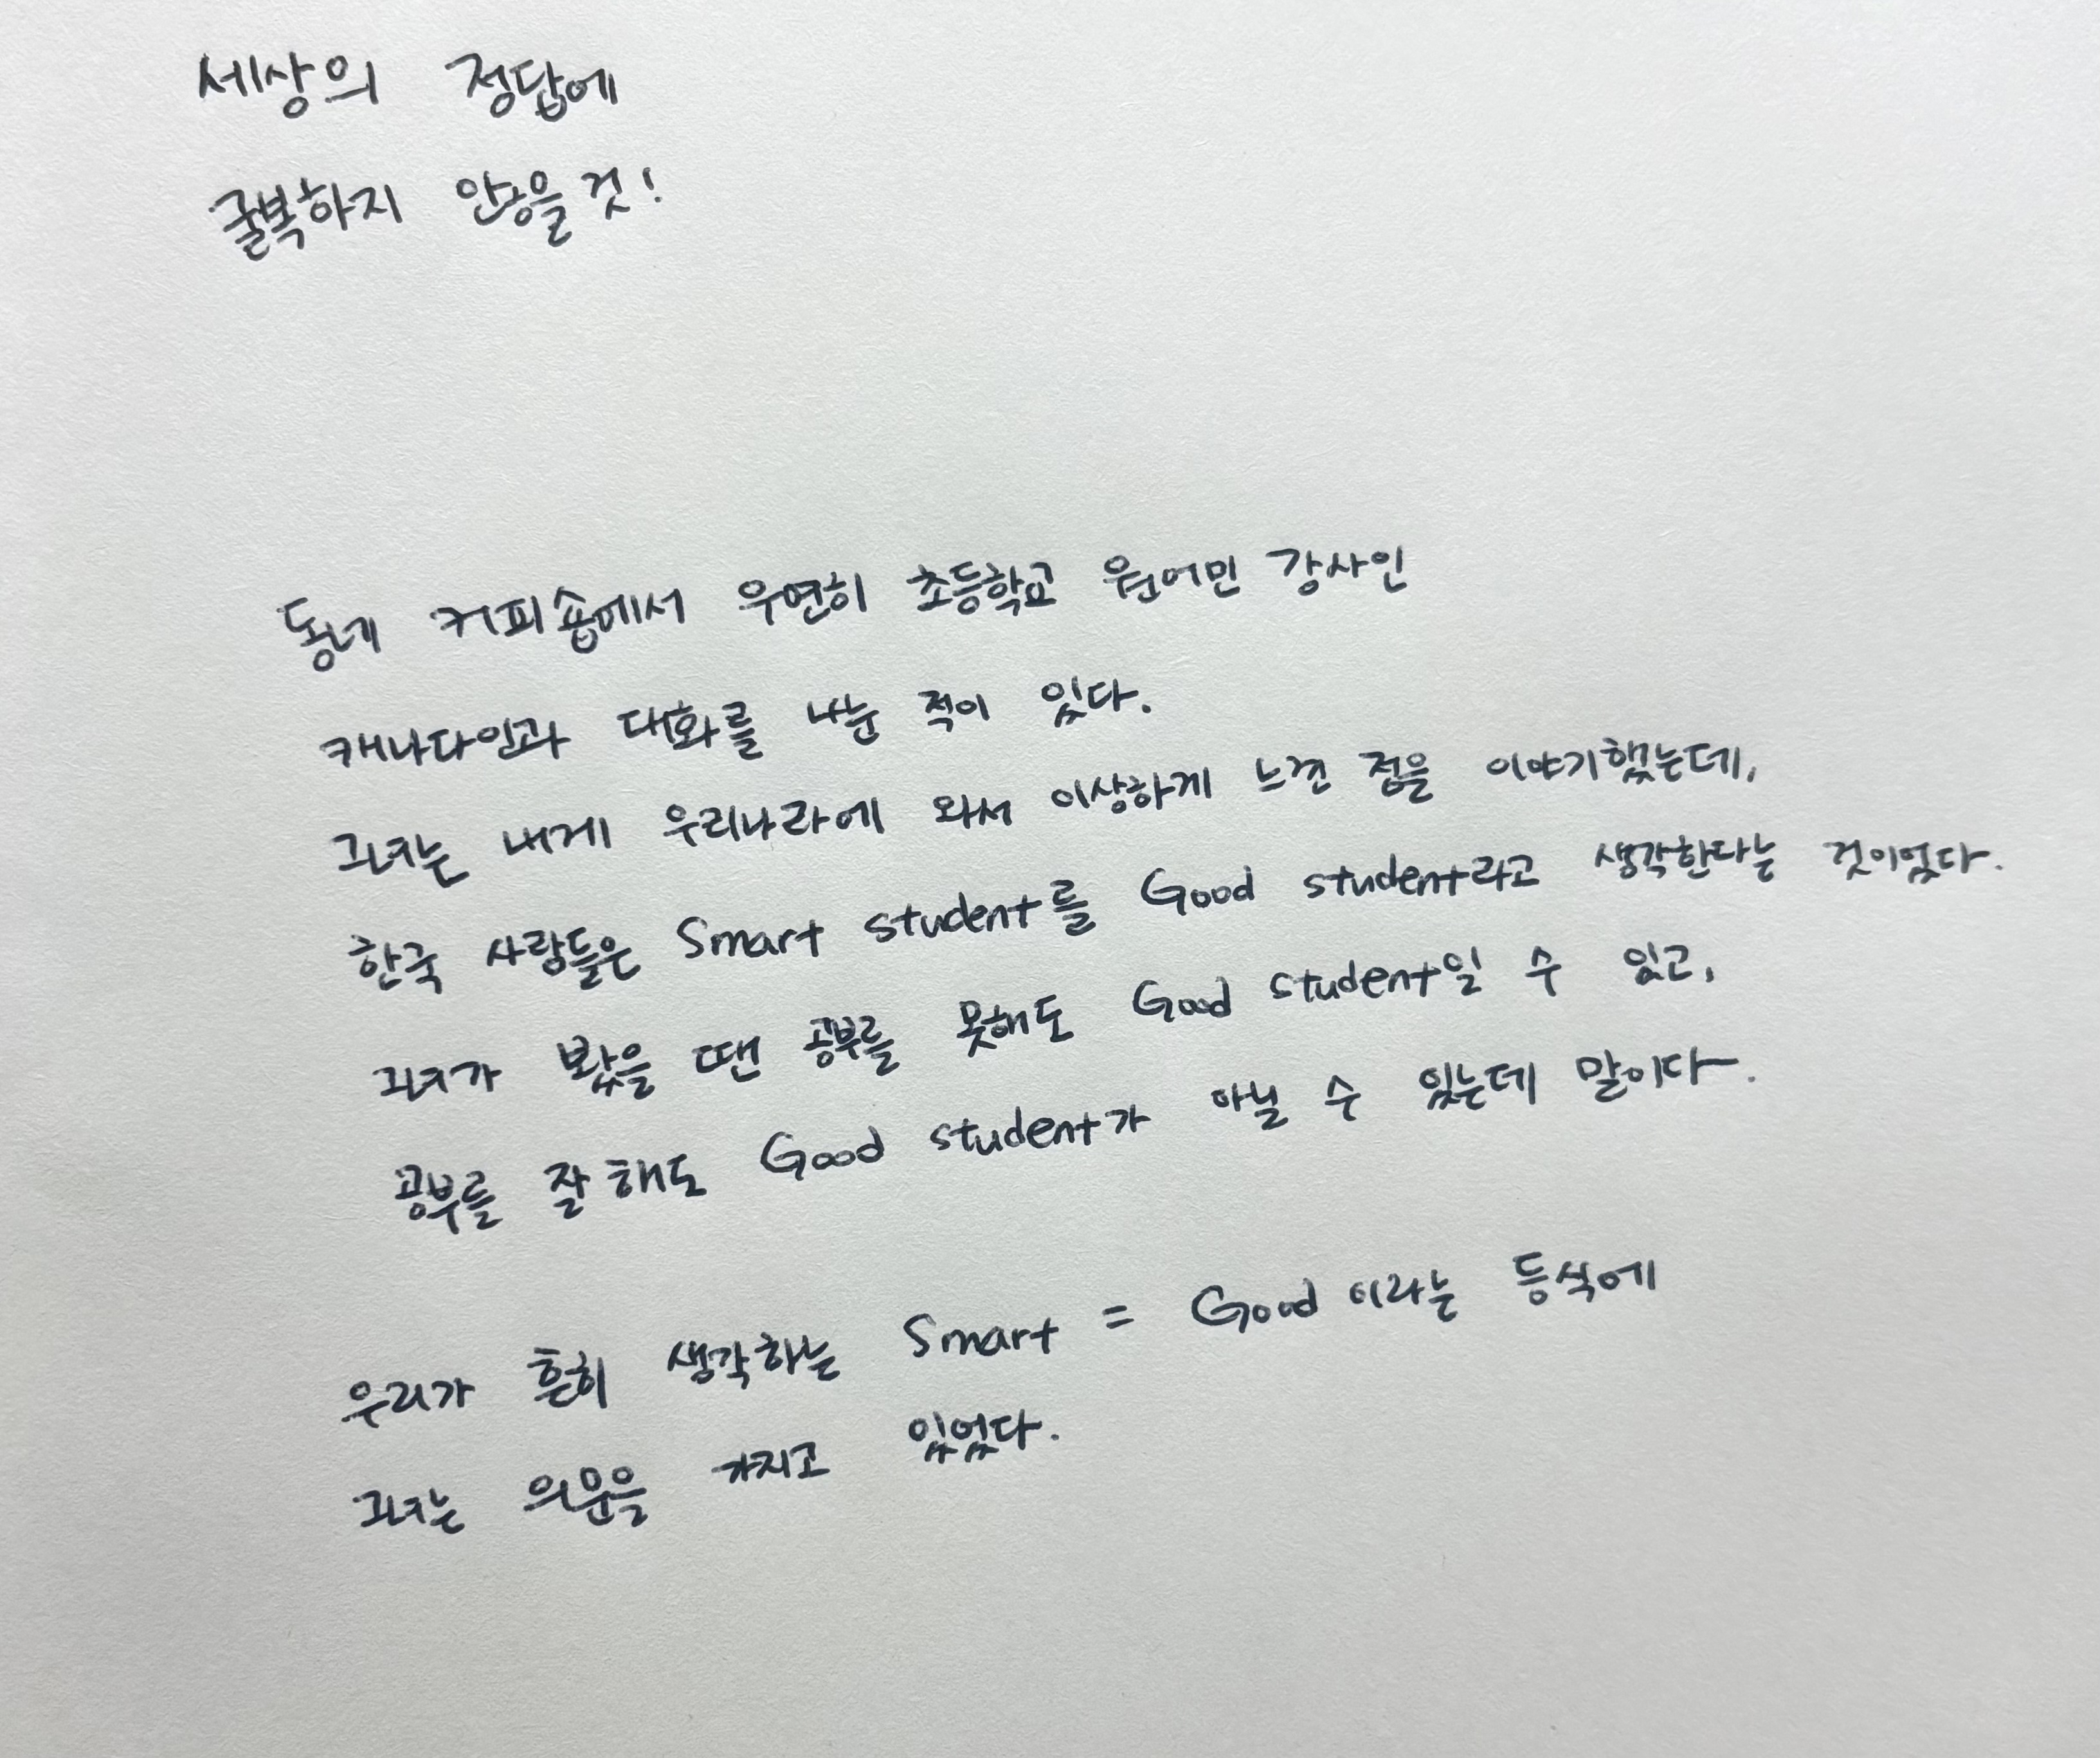 세상의 정답에
굴복하지 않을것!
동네 커피숍에서 우연히 초등학교 원어민 강사인
캐나다인과 대화를 나눈 적이 있다.
그녀는 내게 우리나라에 와서 이상하게 느낀 점을 이야기했는데,
한국 사람들은 Smart student를 Good student라고 생각한다는 것이었다.
그녀가 봤을 땐 공부를 못해도 Good student일 수 있고,
공부를 잘해도 Good student가 아닐 수 있는데 말이다.
우리가 흔히 생각하는 Smart = Good 이라는 등식에
그녀는 의문을 가지고 있었다.